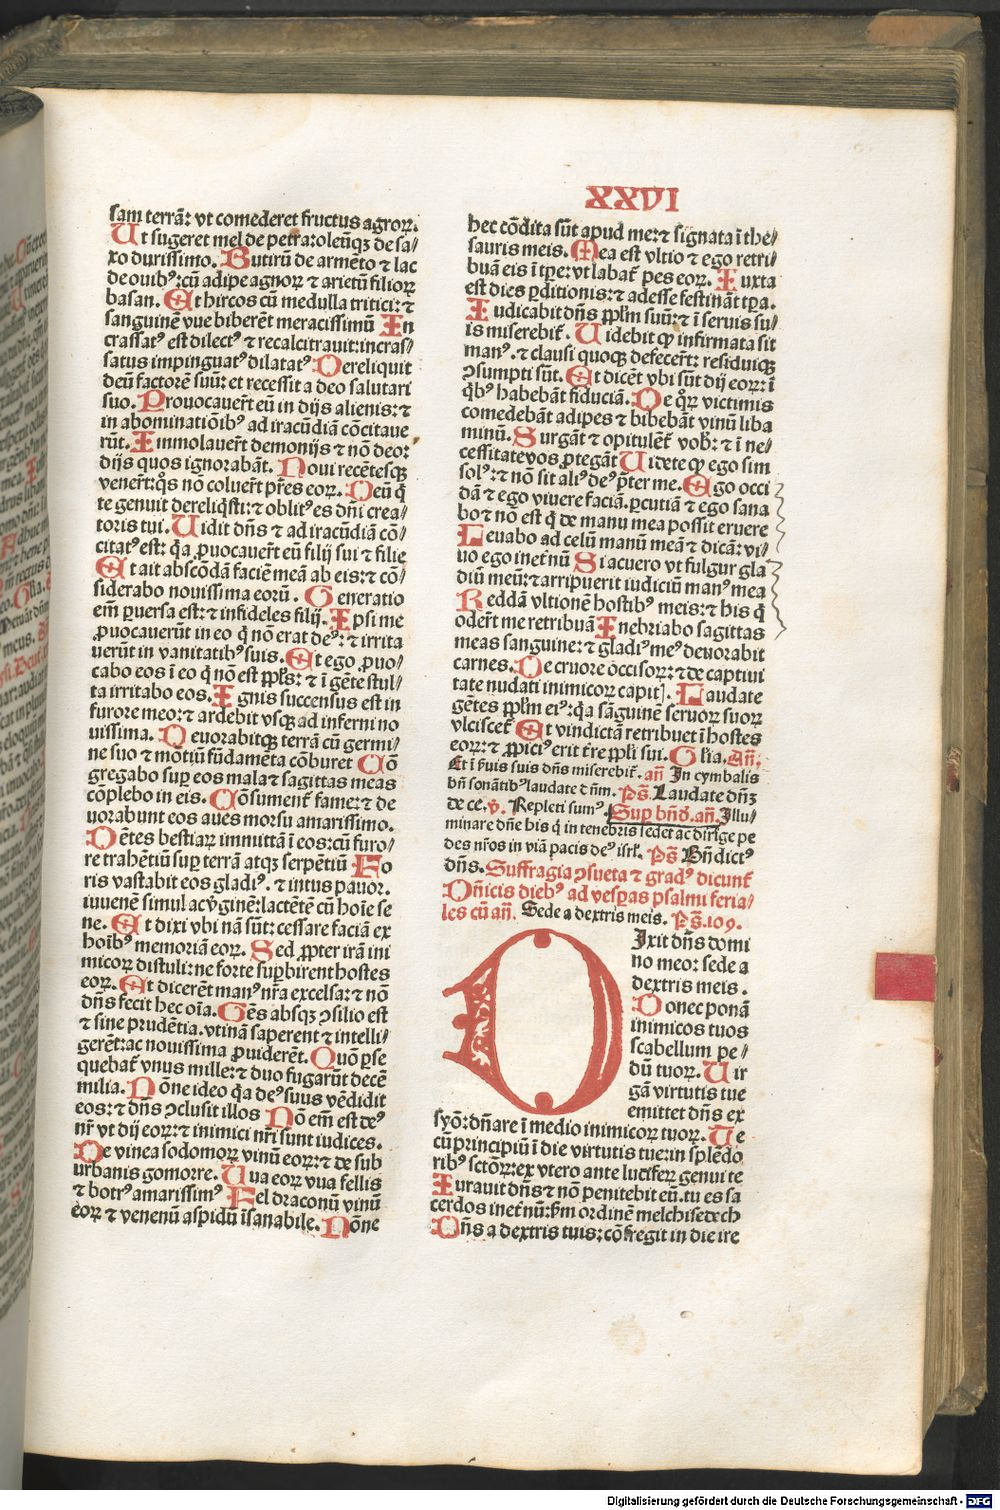 XXVI
sam terrā: vt comederet fructus agroꝝ.
Ut sugeret mel de petra: oleūqꝫ de sa/
xo durissimo. Butirū de armēto ⁊ lac
de ouibꝰ: cū adipe agnoꝝ ⁊ arietū filioꝝ
basan. Et hircos cū medulla tritici: ⁊
sanguinē vue biberēt meracissimū In
crassatꝰ est dilectꝰ ⁊ recalcitrauit: incras/
satus impinguatꝰ dilatatꝰ Dereliquit
deū factorē suū: et recessit a deo salutari
suo. Prouocauerūt eū in dijs alienis: ⁊
in abominatiōibꝰ ad iracūdiā cōcitaue
rūt. Immolauerūt demonijs ⁊ nō deo:
dijs quos ignorabāt. Noui recētesqꝫ
venerūt: qͦs nō coluerūt pr̄es eoꝝ. Deū q̄
te genuit dereliq̄sti: ⁊ oblitꝰ es dn̄i crea/
toris tui. Uidit dn̄s ⁊ ad iracūdiā cō/
citatꝰ est: q̄a ꝓuocauerūt eū filij sui ⁊ filie
Et ait abscōdā faciē meā ab eis: ⁊ cō/
siderabo nouissima eorū. Generatio
em̄ ꝑuersa est: ⁊ infideles filij. Ipsi me
ꝓuocauerūt in eo q̄ nō erat deꝰ: ⁊ irrita
uerūt in vanitatibꝰ suis. Et ego ꝓuo/
cabo eos ī eo q̄ nō est pp̄ls: ⁊ ī gēte stul/
ta irritabo eos. Ignis succensus est in
furore meo: ⁊ ardebit vsqꝫ ad inferni no
uissima. Deuorabitqꝫ terrā cū germi/
ne suo ⁊ motiū fūdamēta cōburet Cō
gregabo suꝑ eos mala ⁊ sagittas meas
cōplebo in eis. Cōsumentᷣ fame: ⁊ de
uorabunt eos aues morsu amarissimo.
Dētes bestiaꝝ immittā ī eos: cū furo/
re trahētiū suꝑ terrā atqꝫ serpētiū Fo
ris vastabit eos gladiꝰ. ⁊ intus pauor.
iuuenē simul ac v̄ginē: lactētē cū hoīe se
ne. Et dixi vbi nā sūt: cessare faciā ex
hoībꝰ memoriā eoꝝ. Sed ꝓpter irā ini
micoꝝ distuli: ne forte suꝑbirent hostes
eoꝝ. Et dicerēt manꝰ nr̄a excelsa: ⁊ nō
dn̄s fecit hec oīa. Gēs absqꝫ ꝯsilio est
⁊ sine prudētia. vtinā saperent ⁊ intelli/
gerēt: ac nouissima ꝓuiderēt. Quō ꝑse
quebatᷣ vnus mille: ⁊ duo fugarūt decē
milia. Nōne ideo q̄a deꝰ suus vēdidit
eos: ⁊ dn̄s ꝯclusit illos Nō em̄ est deꝰ
nr̄ vt dij eoꝝ: ⁊ inimici nr̄i sunt iudices.
De vinea sodomoꝝ vinū eoꝝ: ⁊ de sub
urbanis gomorre. Uua eoꝝ vua fellis
⁊ botrꝰ amarissimꝰ Fel draconū vinū
eoꝝ ⁊ venenū aspidū īsanabile. Nōne
hec cōdita sūt apud me: ⁊ signata ī the/
sauris meis. Mea est vltio ⁊ ego retri/
buā eis ī tꝑe: vt labatᷣ pes eoꝝ. Iuxta
est dies ꝑditionis: ⁊ adesse festināt tꝑa.
Iudicabit dn̄s pp̄lm suū: ⁊ ī seruis su/
is miserebitᷣ. Uidebit qꝙ infirmata sit
manꝰ. ⁊ clausi quoqꝫ defecerūt: residuiqꝫ
ꝯsumpti sūt. Et dicēt vbi sūt dij eoꝝ: ī
q̄bꝰ habebāt fiduciā. De qͦꝝ victimis
comedebāt adipes ⁊ bibebāt vinū liba
minū. Surgāt ⁊ opitulētᷣ vobꝭ: ⁊ ī ne/
cessitate vos ꝓtegāt Uidete qꝙ ego sim
solꝰ: ⁊ nō sit aliꝰ deꝰ p̄ter me. Ego occi
dā ⁊ ego viuere faciā. ꝑcutiā ⁊ ego sana
bo ⁊ nō est q̄ de manu mea possit eruere
Leuabo ad celū manū meā ⁊ dicā: vi/
uo ego inet̄nū Si acuero vt fulgur gla
diū meū: ⁊ arripuerit iudiciū manꝰ mea
Reddā vltionē hostibꝰ meis: ⁊ his q̄
oderūt me retribuā Inebriabo sagittas
meas sanguine: ⁊ gladiꝰ meꝰ deuorabit
carnes. De cruore occisoꝝ: ⁊ de captiui
tate nudati inimicoꝝ capitꝭ. Laudate
gētes pp̄lm eiꝰ: q̄a sāguinē seruoꝝ suoꝝ
vlciscetᷣ Et vindictā retribuet ī hostes
eoꝝ: ⁊ ꝓpiciꝰ erit tr̄e pp̄li sui. Gl̄ia. Añ.
Et ī s̄uis suis dn̄s miserebitᷣ. añ In cymbalis
bn̄ sonātibꝰ laudate dn̄m. Ps̄. Laudate dn̄ꝫ
de ce. v̄. Repleti sumꝰ. Suꝑ bn̄d̄. añ. Illu/
minare dn̄e his q̄ in tenebris sedet ac dirige pe
des nr̄os in viā pacis deꝰ isrl̄. Ps̄ Bn̄dictꝰ
dn̄s. Suffragia ꝯsueta ⁊ gradꝰ dicuntᷣ
Dn̄icis diebꝰ ad vesꝑas psalmi feria/
les cū añ. Sede a dextris meis. Ps̄. 109.
Dixit dn̄s domi
no meo: sede a
dextris meis.
Donec ponā
inimicos tuos
scabellum pe/
dū tuoꝝ. Uir
gā virtutis tue
emittet dn̄s ex
syō: dn̄are ī medio inimicoꝝ tuoꝝ. Te
cū principiū ī die virtutis tue: in splēdo
ribꝰ sctōꝝ: ex vtero ante luciferꝝ genui te
Iurauit dn̄s ⁊ nō penitebit eū. tu es sa
cerdos inet̄nū: ẜm ordinē melchisedech
Dn̄s a dextris tuis: cōfregit in die ire
Digitalisierung gefördert durch die Deutsche Forschungsgemeinschaft - DFG